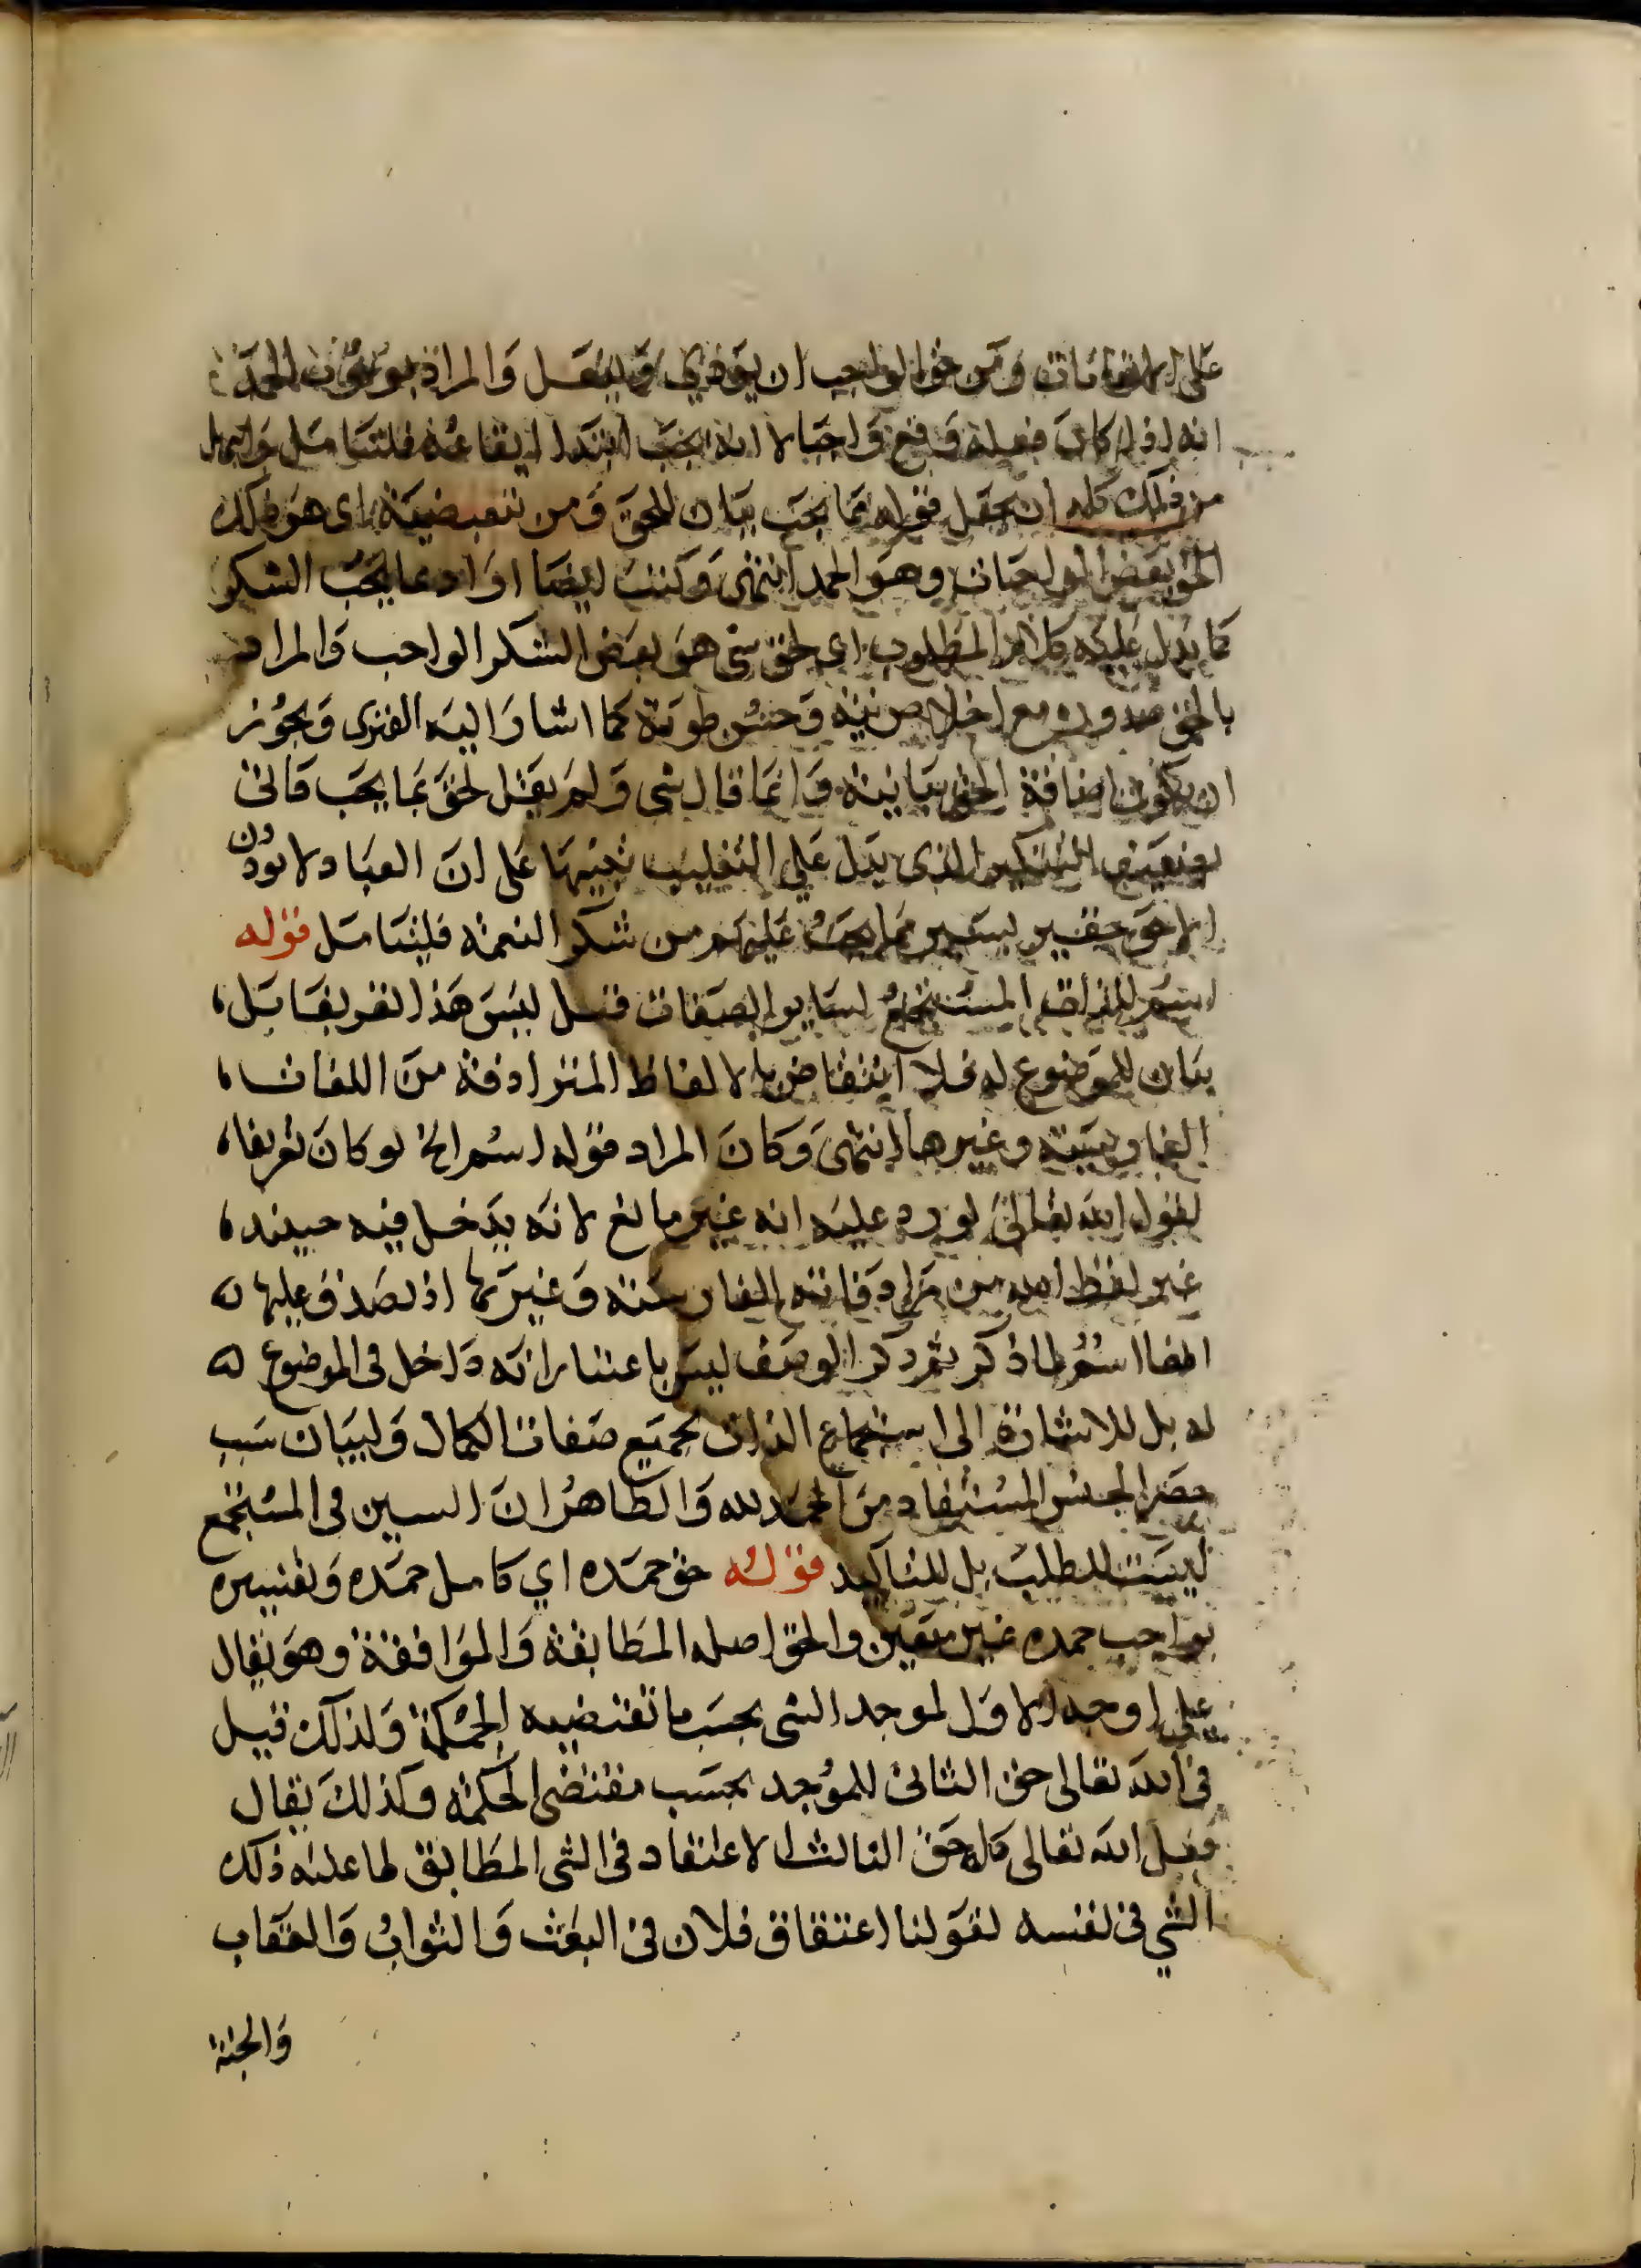 على انعامات ومن حق الواجب ان يؤدي ويفعل والمراد بوجوب الحمد
انه اذا كان فعله وقع واجبا لا انه يجب ابتدا ايقاعه فليتامل واسهل
من ذلك كله ان يجعل قوله مما يجب بيان للحق ومن تبعيضية اى هو ذلك
الحق بعض الواجبات وهو الحمد انتهى وكتب ايضا اراد بما يجب الشكر
كما يدل عليه كلام المطلوب اى لحق شى هو بعض الشكر الواجب والمراد
بالحق صدوره مع اخلاص نية وحسن طوية كما اشار اليه الفنرى ويجوز
ان يكون اضافة الحق بيانية وانما قال شى ولم يقل لحق بما يجب فاتى
التنكير الذى يدل على التقليب تنبيها على ان العباد لا يودون
الا حق حقير يسير مما يجب عليهم من شكر النعمة فليتامل قوله
اسم للذات المستجمع لساير الصفات قيل ليس هذا تعريفا بل
بيان للموضوع له فلا انتقاض بالالفاظ المترادفة من اللغات
الفارسية وغيرها انتهى وكان المراد قوله اسم الخ لو كان تعريفا
لقول الله تعالى لورد عليه انه غير مانع لانه يدخل فيه حينيذ
غير لفظ الله من مرادفاته الفارسية وغيرها اذ يصدق عليها
انها اسم لما ذكر ثم ذكر الوصف ليس باعتبار انه داخل فى الموضوع له
له بل للاشارة الى استجماع الذات بجميع صفات الكمال ولبيان سبب
حصر الجنس المستفاد من الحمد لله والظاهر ان السين فى المستجمع
ليست للطلب بل للتاكيد قوله حق حمده اي كامل حمده وتفسيره
بواجب حمده غير متعين والحق اصله المطابقة والموافقة وهو يقال
على اوجه الاول لموجد الشى بحسب ما تقتضيه الحكمة ولذلك قيل
فى الله تعالى حق الثانى للموجد بحسب مقتضى الحكمة وكذلك يقال
فعل الله تعالى كله حق الثالث الاعتقاد فى الشى المطابق لما عليه ذلك
الشي فى نفسه لقولنا اعتقاق فلان فى البعث والثواب والعقاب
والجنة